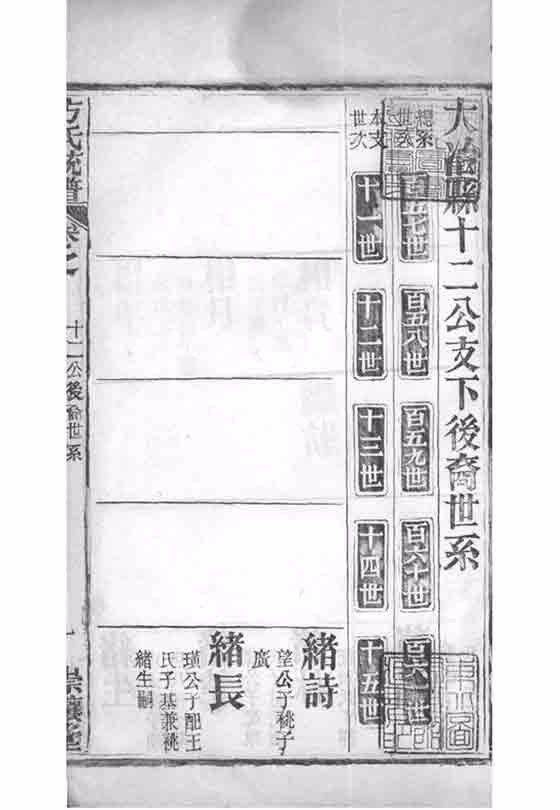 大冶縣十二公支下後裔世系
總系世次
百五七世
百五八世
百五九世
百六十世
百六一世
本支世次
十一世
十二世
十三世
十四世
十五世
緒詩
望公子祧子
廣
緒長
璜公子配王
氏子基兼祧
緒生嗣
方氏統譜
卷之
十二公後裔世系
一
崇讓堂